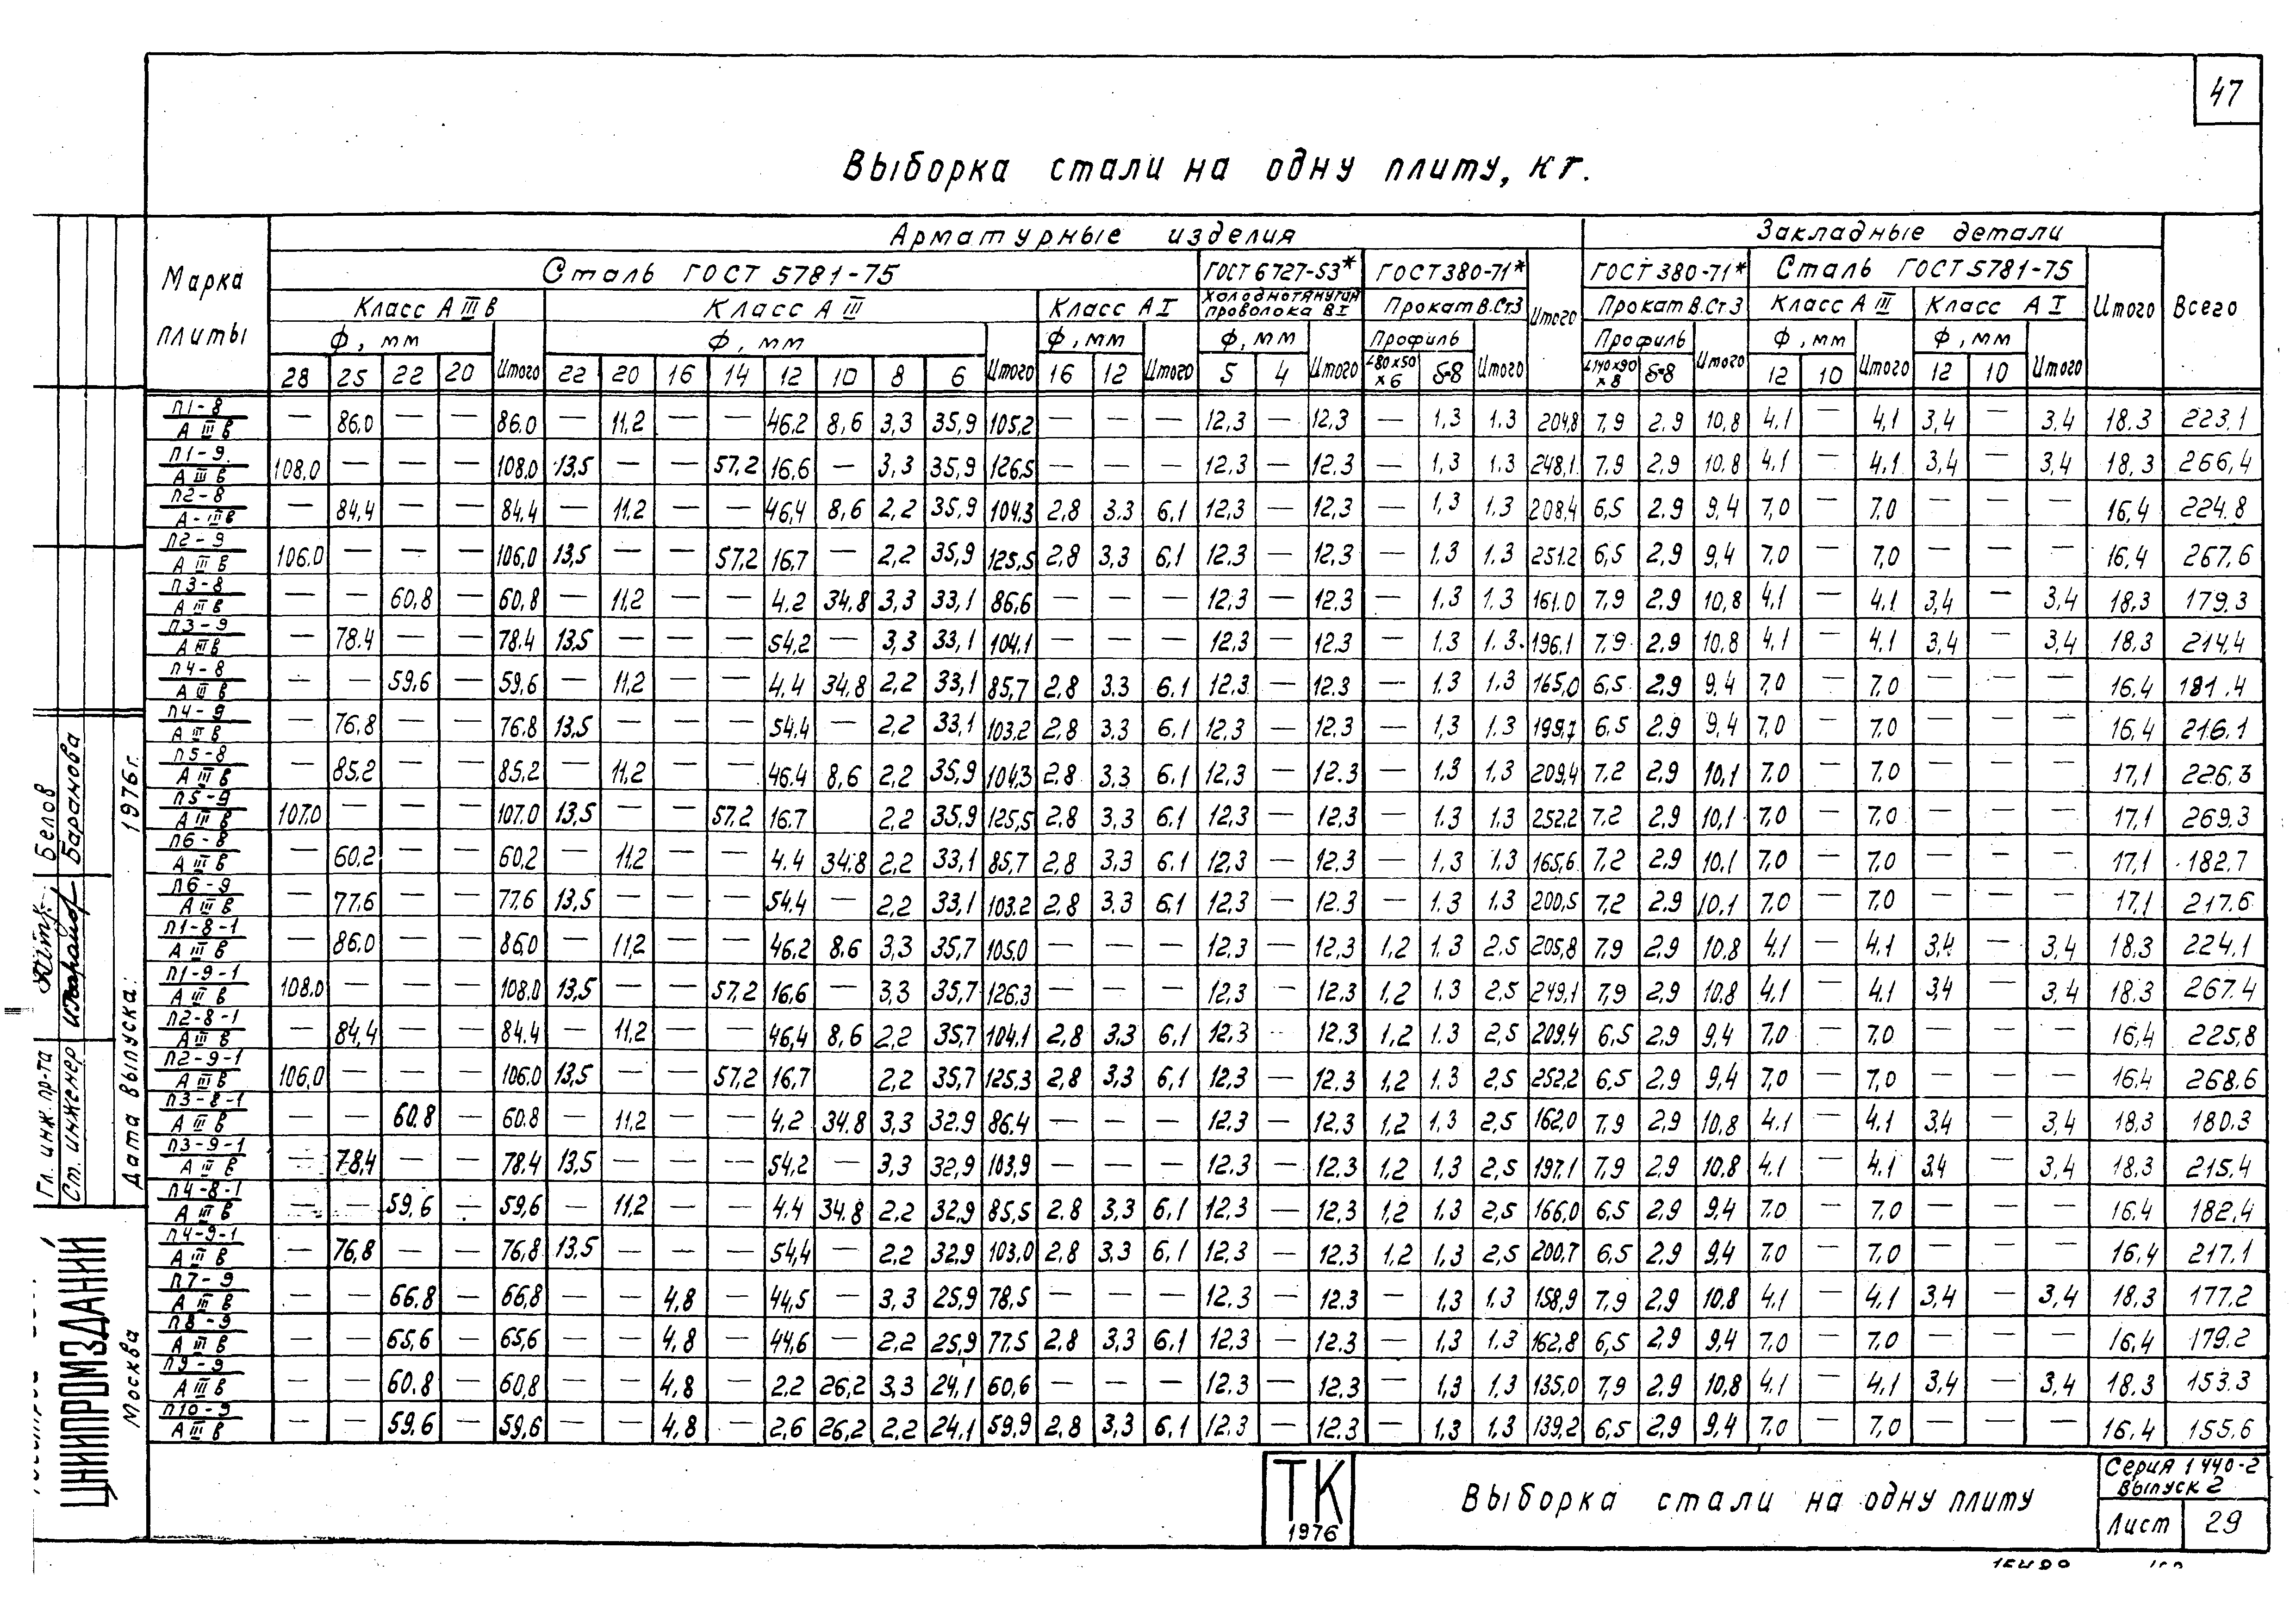 47
Выборка стали на одну плиту, кг.
Марка плиты
Арматурные изделия
Закладные детали
Всего
Сталь ГОСТ 5781-75
ГОСТ 6727-53*
ГОСТ 380-71*
Итого
ГОСТ 380-71*
Сталь ГОСТ 5781-75
Итого
Класс А III в
Класс А III
Класс А I
Холоднотянутая проволока В I
Прокат В.Ст.3
Прокат В.Ст.3
Класс А III
Класс А I
Ф, мм
Ф, мм
Ф, мм
Ф, мм
Профиль
Профиль
Ф, мм
Ф, мм
28 25 22 20 Итого 22 20 16 14 12 10 8 6 Итого 16 12 Итого 5 4 Итого ∠80х50х6 δ-8 Итого ∠140х90х8 δ-8 Итого 12 10 Итого 12 10 Итого
П1-8 А III в — 86,0 — — 86.0 — 11,2 — — 46.2 8,6 3,3 35,9 105,2 — — — 12,3 — 12.3 — 1,3 1.3 204,8 7,9 2.9 10,8 4.1 — 4,1 3,4 — 3.4 18.3 223,1
П1-9 А III в 108,0 — — — 108.0 13,5 — — 57,2 16,6 — 3,3 35,9 126,5 — — — 12.3 — 12.3 — 1,3 1.3 248,1 7,9 2,9 10,8 4,1 — 4.1 3,4 — 3,4 18,3 266,4
П2-8 А-III в — 84,4 — — 84,4 — 11,2 — — 46,4 8,6 2,2 35,9 104.3 2,8 3.3 6,1 12,3 — 12,3 — 1,3 1.3 208,4 6,5 2.9 9,4 7,0 — 7.0 — — — 16,4 224.8
П2-9 А III в 106.0 — — — 106,0 13,5 — — 57,2 16,7 — 2,2 35,9 125,5 2,8 3,3 6,1 12.3 — 12,3 — 1.3 1.3 251.2 6,5 2,9 9,4 7,0 — 7,0 — — — 16,4 267,6
П3-8 А III в — — 60,8 — 60,8 — 11,2 — — 4.2 34,8 3,3 33,1 86,6 — — — 12,3 — 12.3 — 1,3 1.3 161.0 7,9 2,9 10,8 4,1 — 4.1 3,4 — 3,4 18,3 179.3
П3-9 А III в — 78.4 — — 78.4 13,5 — — — 54,2 — 3,3 33,1 104,1 — — — 12,3 — 12.3 — 1,3 1.3 196,1 7,9 2,9 10,8 4,1 — 4.1 3,4 — 3,4 18.3 214,4
П4-8 А III в — — 59,6 — 59,6 — 11,2 — — 4.4 34,8 2,2 33,1 85,7 2,8 3.3 6.1 12.3 — 12.3 — 1.3 1.3 165,0 6,5 2,9 9,4 7,0 — 7.0 — — — 16.4 181.4
П4-9 А III в — 76.8 — — 76.8 13,5 — — — 54.4 — 2,2 33,1 103.2 2,8 3,3 6,1 12.3 — 12.3 — 1,3 1.3 199,7 6,5 2,9 9,4 7,0 — 7.0 — — — 16,4 216.1
П5-8 А III в — 85,2 — — 85,2 — 11,2 — — 46.4 8,6 2,2 35,9 104,3 2.8 3,3 6,1 12,3 — 12.3 — 1,3 1,3 209,4 7,2 2,9 10,1 7,0 — 7.0 — — — 17,1 226,3
П5-9 А III в 107.0 — — — 107.0 13,5 — — 57.2 16.7 2,2 35.9 125,5 2.8 3,3 6.1 12,3 — 12,3 — 1.3 1.3 252,2 7,2 2,9 10,1 7,0 — 7,0 — — — 17,1 269,3
П6-8 А III в 60,2 — — 60,2 — 11,2 — — 4.4 34,8 2,2 33,1 85,7 2,8 3,3 6.1 12.3 — 12.3 — 1,3 1,3 165,6 7,2 2,9 10,1 7,0 — 7,0 — — — 17,1 182.7
П6-9 А III в — 77,6 — — 77,6 13,5 — — — 54.4 — 2,2 33,1 103.2 2,8 3.3 6,1 12.3 — 12.3 — 1.3 1.3 200,5 7,2 2.9 10,1 7,0 — 7,0 — — — 17,1 217.6
П1-8-1 А III в — 86.0 — — 86,0 — 11,2 — — 46,2 8,6 3,3 35,7 105,0 — — — 12.3 — 12,3 1,2 1.3 2,5 205,8 7,9 2,9 10,8 4,1 — 4.1 3,4 — 3,4 18.3 224.1
П1-9-1 А III в 108.0 — — — 108.0 13,5 — — 57,2 16,6 — 3,3 35,7 126.3 — — — 12.3 — 12,3 1,2 1.3 2,5 249,1 7,9 2,9 10,8 4,1 — 4,1 3,4 — 3,4 18.3 267.4
П2-8-1 А III в — 84,4 — — 84.4 — 11,2 — — 46,4 8,6 2,2 35,7 104.1 2,8 3,3 6,1 12.3 12.3 1,2 1.3 2,5 209,4 6,5 2,9 9,4 7,0 — 7,0 — — — 16,4 225,8
П2-9-1 А III в 106,0 — — — 106.0 13,5 — — 57,2 16,7 2,2 35,7 125.3 2,8 3,3 6,1 12,3 — 12.3 1,2 1.3 2,5 252,2 6,5 2,9 9,4 7,0 — 7,0 — — — 16.4 268.6
П3-8-1 А III в — — 60.8 — 60.8 — 11,2 — — 4.2 34.8 3,3 32.9 86.4 — — — 12.3 — 12.3 1,2 1,3 2,5 162,0 7,9 2,9 10,8 4.1 — 4.1 3,4 — 3,4 18.3 180.3
П3-9-1 А III в — 78,4 — — 78.4 13,5 — — — 54,2 — 3,3 32,9 103,9 — — — 12.3 — 12.3 1,2 1,3 2,5 197,1 7,9 2.9 10,8 4.1 — 4.1 3,4 — 3,4 18.3 215,4
П4-8-1 А III в — — 59,6 — 59,6 — 11,2 — — 4.4 34.8 2,2 32,9 85,5 2.8 3,3 6,1 12.3 — 12.3 1,2 1.3 2,5 166,0 6,5 2,9 9,4 7.0 — 7,0 — — — 16.4 182.4
П4-9-1 А III в — 76,8 — — 76,8 13,5 — — — 54,4 — 2,2 32,9 103,0 2,8 3,3 6,1 12.3 — 12.3 1.2 1,3 2,5 200,7 6,5 2,9 9,4 7,0 — 7,0 — — — 16,4 217.1
П7-9 А III в — — 66.8 — 66,8 — — 4,8 — 44,5 — 3,3 25,9 78,5 — — — 12.3 — 12.3 — 1,3 1.3 158,9 7,9 2,9 10,8 4,1 — 4,1 3,4 — 3,4 18.3 177.2
П8-9 А III в — — 65,6 — 65,6 — — 4,8 — 44,6 — 2,2 25,9 77,5 2,8 3,3 6,1 12.3 — 12.3 — 1,3 1,3 162,8 6,5 2,9 9,4 7,0 — 7,0 — — — 16,4 179.2
П9-9 А III в — — 60.8 — 60,8 — — 4,8 — 2.2 26,2 3,3 24,1 60,6 — — — 12.3 — 12.3 — 1,3 1,3 135,0 7,9 2,9 10,8 4,1 — 4,1 3,4 — 3,4 18.3 153.3
П10-9 А III в — — 59.6 — 59,6 — — 4,8 — 2,6 26,2 2,2 24,1 59,9 2,8 3,3 6,1 12.3 — 12.3 — 1,3 1,3 139,2 6,5 2,9 9,4 7,0 — 7,0 — — — 16,4 155.6
Гл. инж. пр-та Белов
Ст. инженер Баранова
Дата выпуска: 1976г.
ЦНИИПРОМЗДАНИЙ
Москва
ТК
1976
Выборка стали на одну плиту
Серия 1 440-2
Выпуск 2
Лист 29